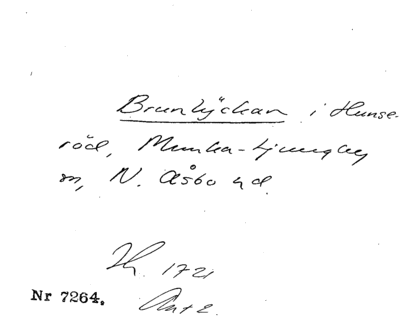 Brunlyckan i Hunse-
röd, Munka-Ljungby
sn, N. Åsbo hd.
Jb. 1721
Nr 7264. Ant E.